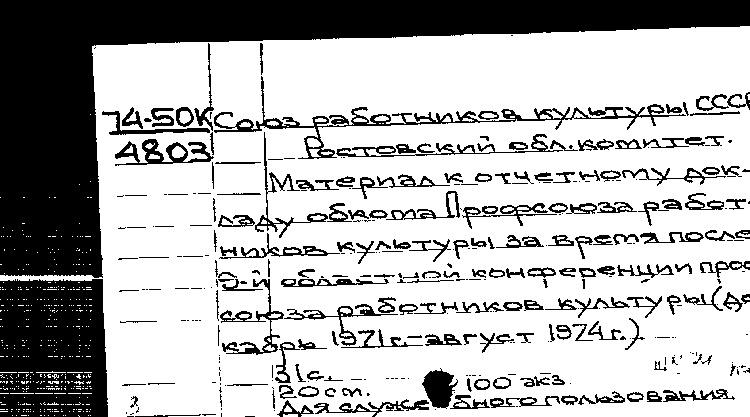 74-50К Союз работников культуры СССР
4803 Ростовский обл. комитет.
Материал к отчетному док-
ладу обкома Профсоюза работ-
ников культуры за время после
9-й областной конференции проф
союза работников культуры (де
кабрь 1971 г.-август 1974 г.).
31 с.
20 cm. 100 экз
Для служебного пользования.